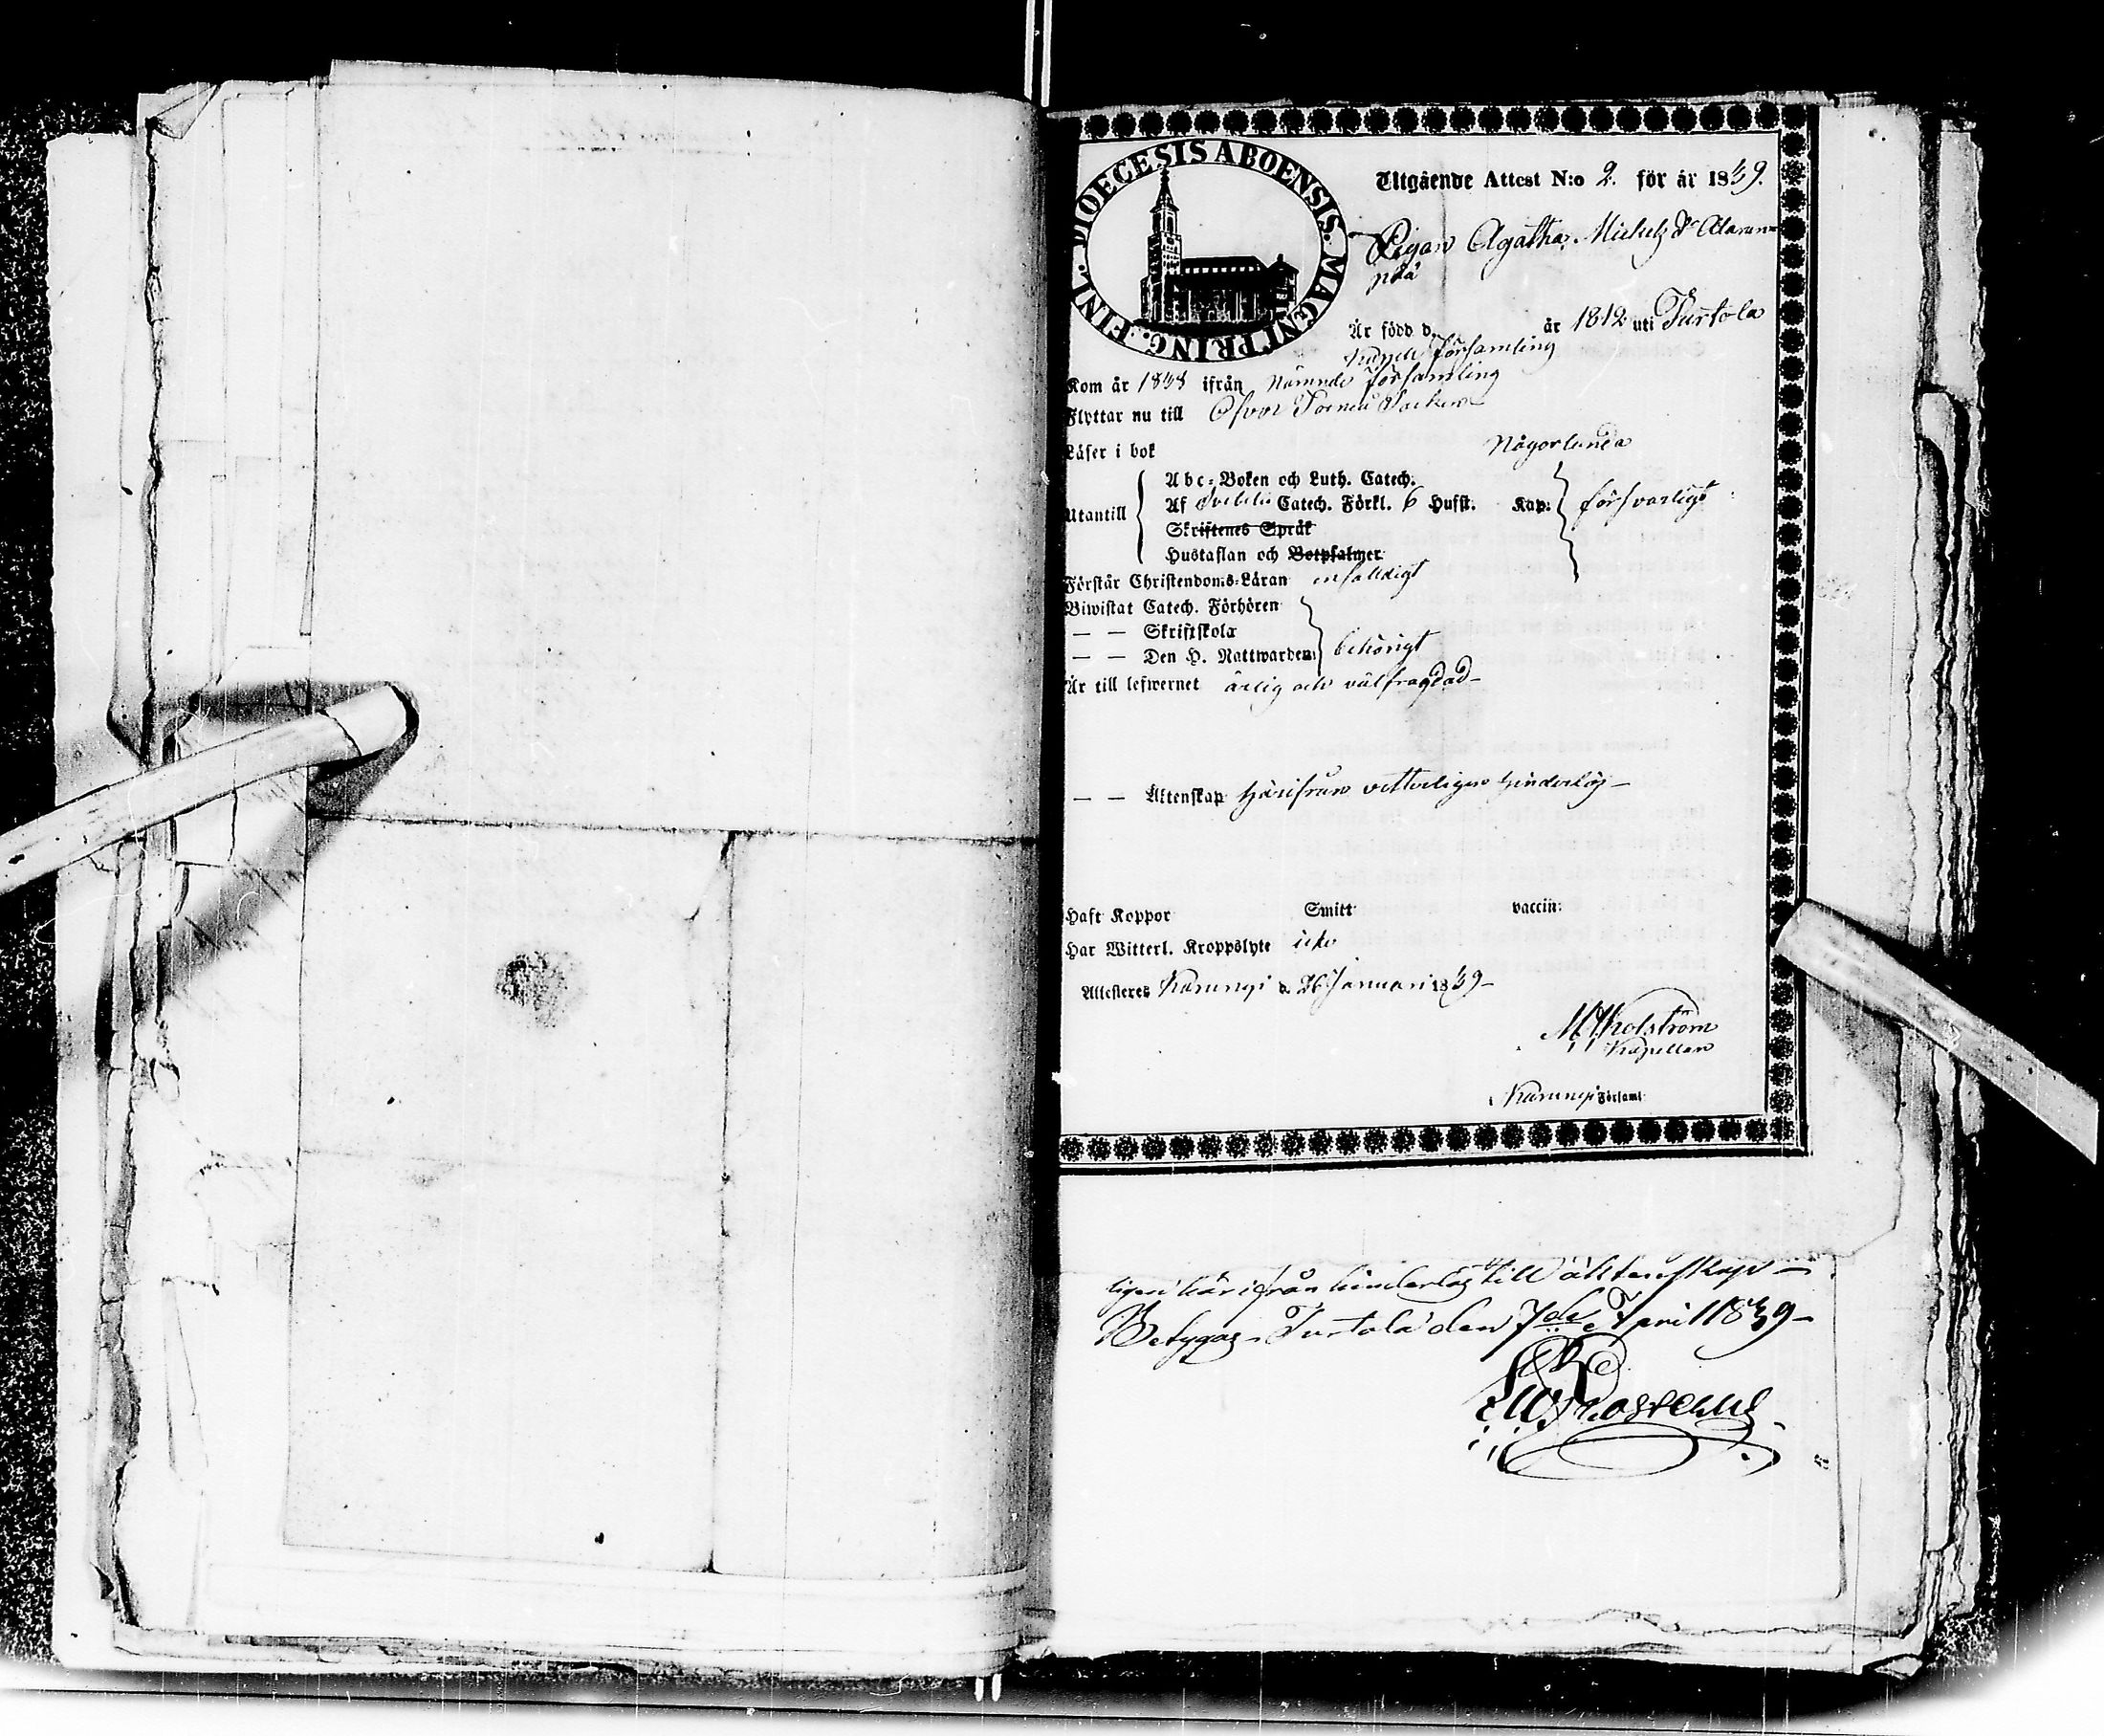 DIOECESIS ABOENSIS. MAGNI PRINC. FINL.
Utgående Attest N:o 2. för år 1839.
Pigan Agatha Michels dr Alaran=
pää
Är född d. år 1812 uti Turtola
Kapell församling
Kom år 1838 ifrån Nämnde församling
Flyttar nu till Öfver Torneå Socken
Läser i bok Någorlunda
Abc-Boken och Luth. Catech.
Utantill Af Svebelii Catech. Förkl. 6 Hufst. Kap. försvarligt
Skriftenes Språk
Hustaflan och Botpsalmer
Förstår Christendoms-Läran enfalldigt
Biwistat Catech. Förhören
— — Skriftskola
— — Den H. Nattwarden behörigt
Är till lefwernet ärlig och välfrägdad–
— — Äktenskap härifrån vetterligen hinderlös–
Haft Koppor Smitt vaccin:
Har Witterl. Kroppslyte icke
Attesteras Karungi d. 26 Januari 1839–
Kapellan
Karungi Församl.
ligen härifrån hinderlös till äktenskap –
Betygas Turtola den 7de April 1839–